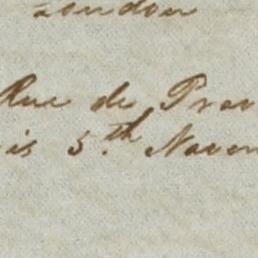 London
Rue de Prov
is 5th Novem